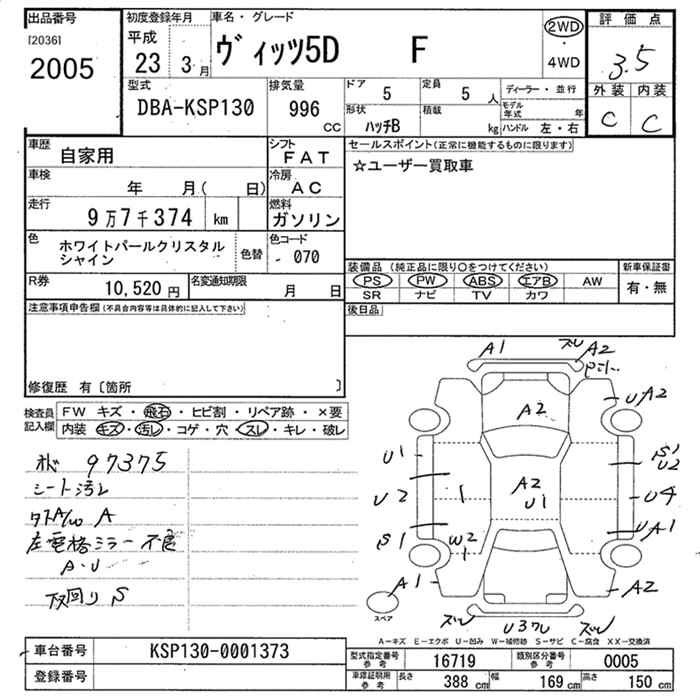 出品番号
[2036]
2005
初度登録年月
平成
23 3月
車名・グレード
ヴィッツ5D F
2WD
・
4WD
評価点
3.5
外装 内装
C C
型式
DBA-KSP130
排気量
996
CC
ドア
5
定員
5 人
ディーラー・並行
形状
ハッチB
積載
kg
モデル年式 年
ハンドル 左・右
車歴
自家用
シフト
FAT
車検
年 月( 日)
冷房
AC
走行
9万7千374 km
燃料
ガソリン
色
ホワイトパールクリスタル
シャイン
色替
色コード
070
R券
10,520 円
名変通知期限
月 日
セールスポイント(正常に機能するものに限ります)
☆ユーザー買取車
装備品 (純正品に限り○をつけてください)
PS PW ABS エアB AW
SR ナビ TV カワ
新車保証書
有・無
後日品
注意事項申告欄(不具合内容等は具体的に記入して下さい)
修復歴 有〔箇所 〕
検査員
記入欄
FW キズ・飛石・ヒビ割・リペア跡・×要
内装 キズ・汚レ・コゲ・穴・スレ・キレ・破レ
97375
シート汚レ
A
左電格ミラー不良
A・U
下回り S
A1 ズレ A2
A2 UA2
U1 S1
U2
U2 1 A2
U1 U4
S1 W2
1 UA1
A1 A2
スペア
ズレ U37レ ズレ
A-キズ E-エクボ U-凹み W-補修跡 S-サビ C-腐食 XX-交換済
車台番号
KSP130-0001373
登録番号
型式指定番号
参考
16719
類別区分番号
参考
0005
車庫証明用
参考
長さ
388 cm
幅
169 cm
高さ
150 cm